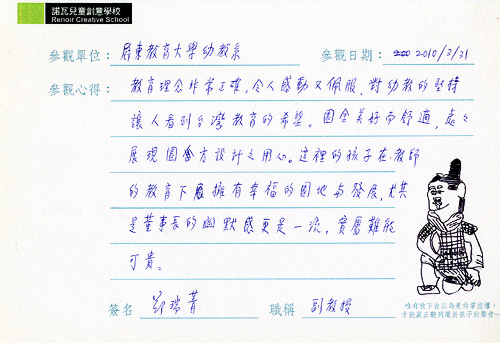 諾瓦兒童創意學校
Renoir Creative School
參觀單位：屏東教育大學幼教系 參觀日期：2010/3/31
參觀心得：教育理念非常正確，令人感動又佩服，對幼教的堅持
讓人看到台灣教育的希望。園舍美好而舒適，處處
展現園方設計之用心。這裡的孩子在教師
的教育下擁有幸福的園地與發展，尤其
是董事長的幽默感更是一流，實屬難能
可貴。
簽名 鄭瑞菁 職稱 副教授
唯有放下自以為是的掌控權，
才能真正聽到屬於孩子的聲音